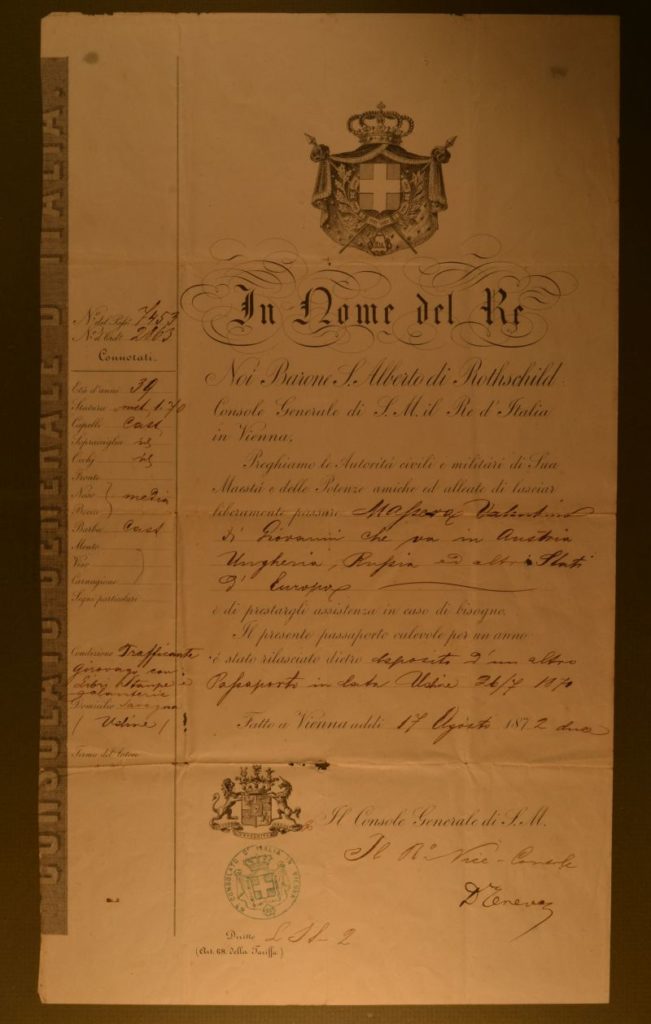 CONSOLATO GENERALE D'ITALIA.
No. del Passo. 7453
No. d'Ord. 2863
Connotati.
Età d'anni 39
Statura met. 1.70
Capelli Cast.
Sopracciglia id
Occhj id
Fronte
Naso media
Bocca
Barba Cast
Mento
Viso
Carnagione
Segni particolari
Condizione Trafficante
girovago con
libri Stampe e
galanterie
Domicilio
(Udine)
Firma del Latore
In Nome del Re
Noi Barone S. Alberto di Rothschild
Console Generale di S. M. il Re d'Italia
in Vienna,
Preghiamo le Autorità civili e militari di Sua
Maestà e delle Potenze amiche ed alleate di lasciar
liberamente passare Valentino
di Giovanni che va in Austria
Ungheria, Russia ed altri Stati
d'Europa
e di prestargli assistenza in caso di bisogno.
Il presente passaporto valevole per un anno
è stato rilasciato dietro deposito d'un altro
Passaporto in data Udine 26/7 1870
Fatto a Vienna addì 17 Agosto 1872 due
Il Console Generale di S. M.
Il Ro. Vice-Console
Ro. CONSOLATO D'ITALIA IN VIENNA
Diritto L. 2
(Art. 68. della Tariffa)